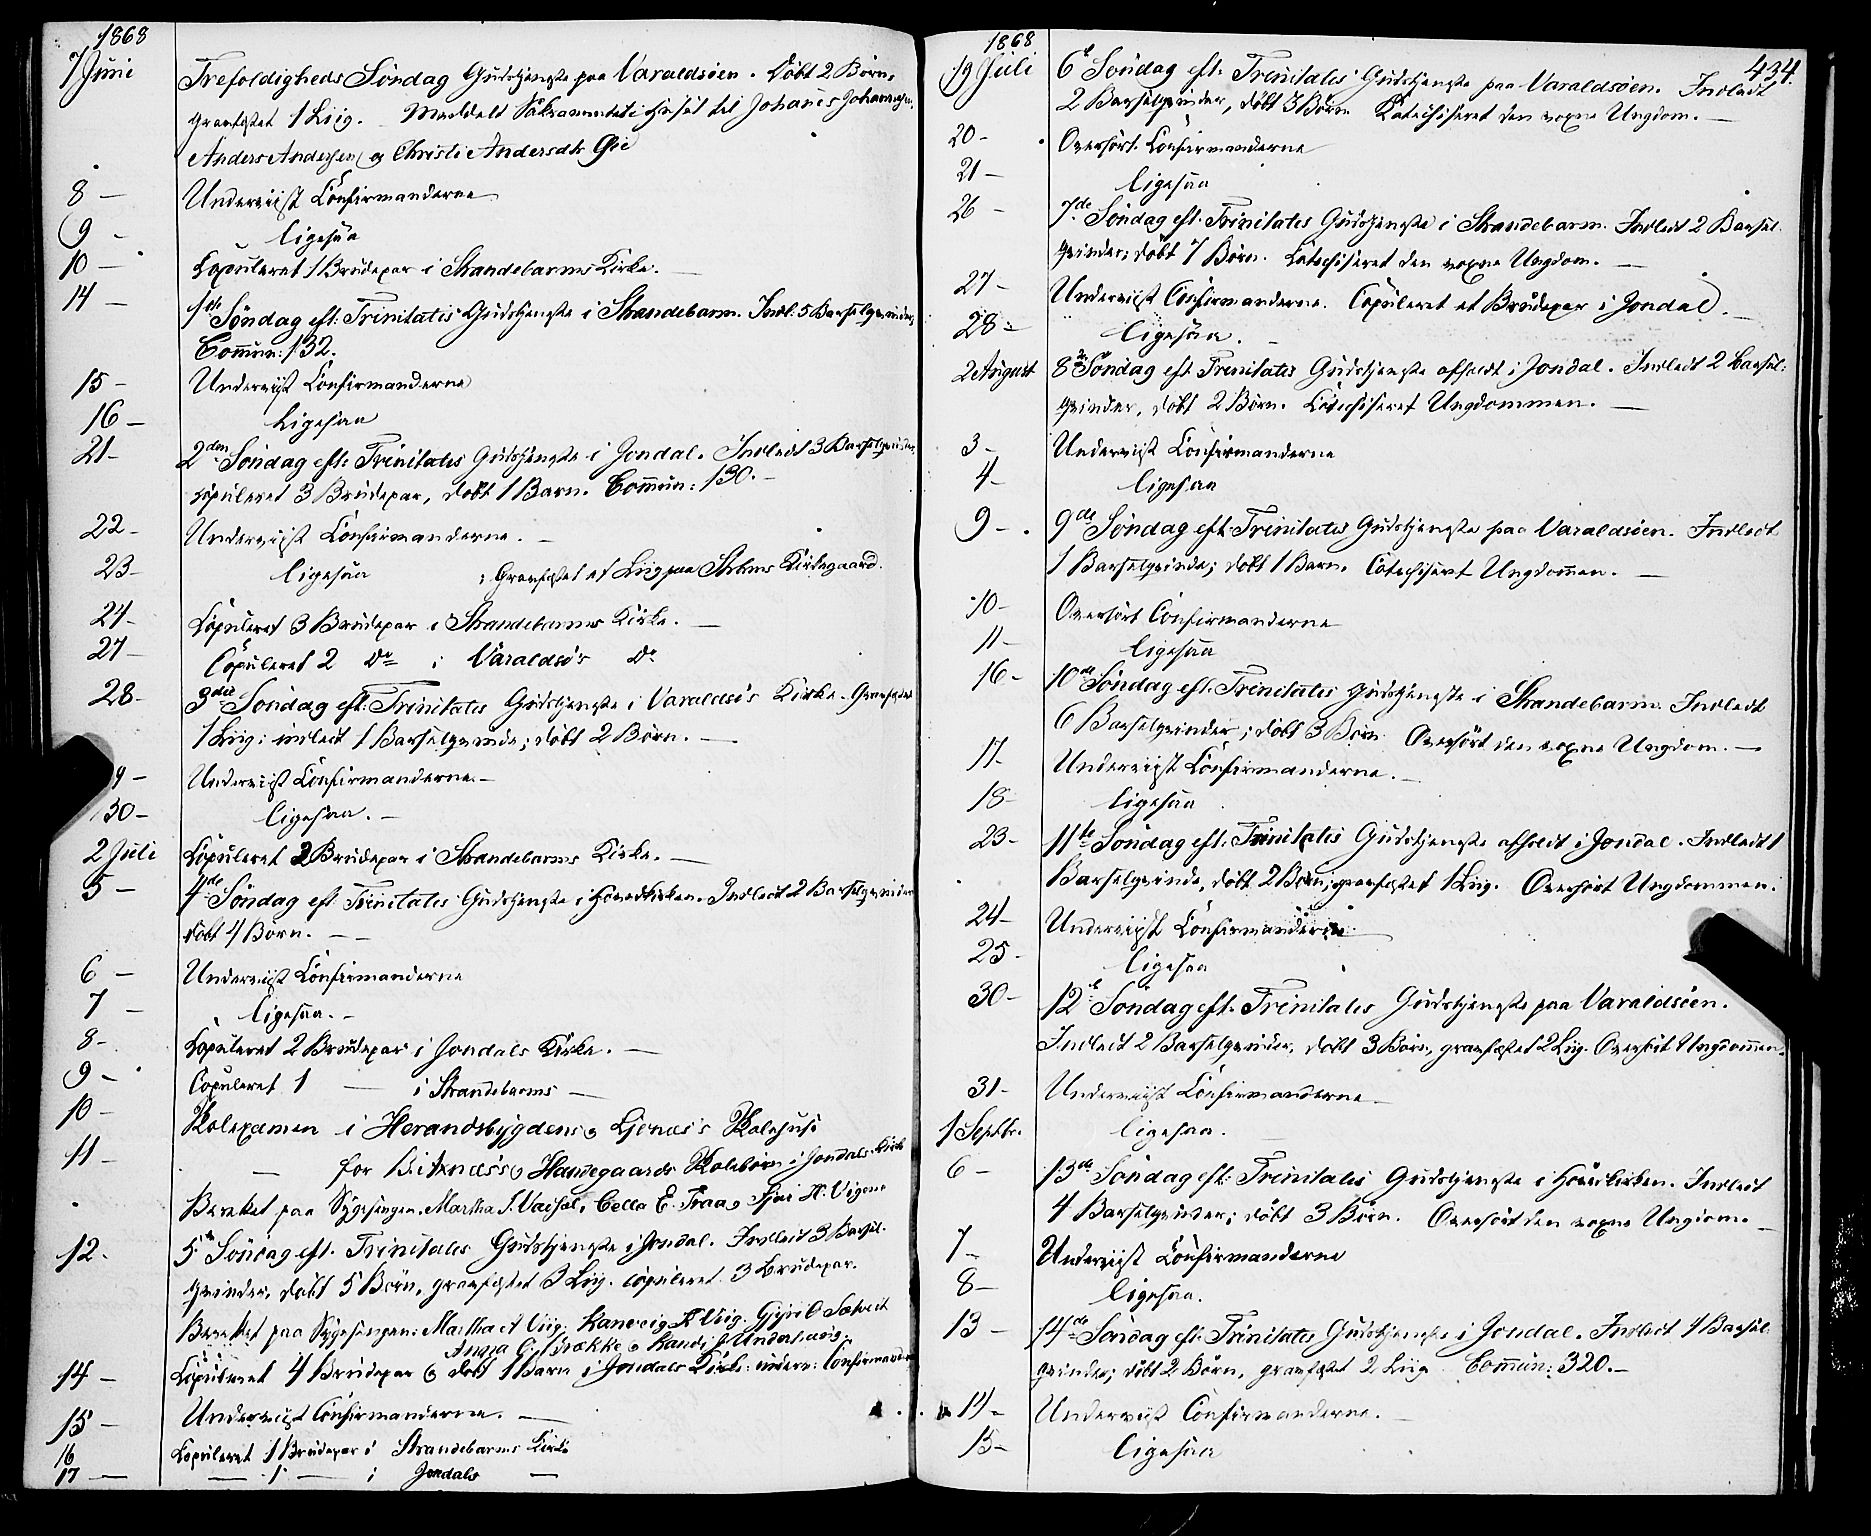 1868
7 Juni Trefoldigheds Søndag Gudstjeneste paa Varaldsöen. Döbt 2 Börn,
Græsfæstet 1 Liig. Meddelt Sakramentet i Huset til Johanes Johannesen,
Anders Andersen og Christi Andersdtr Gie
8 — Underviist Confirmanderne
9 — ligesaa
10 — Copuleret 1 Brudepar i Strandebarms Kirke. —
14 — 1ste Söndag eft: Trinitatis Gudstjeneste i Strandebarm. Indl. 5 Barselqvinder,
Commun: 132.
15 — Underviist Confirmanderne
16 — Ligesaa
21 — 2den Söndag eft: Trinitatis Gudstjeneste i Jondal. Indledt 3 Barselqvinder,
copuleret 3 Brudepar, döbt 1 Barn. Commun: 130. —
22 — Underviist Confirmanderne. —
23 — ligesaa ; Græsfæstet et Liig paa Strbms Kirkegaard.
24 — Copuleret 3 Brudepar i Strandebarms Kirke. —
27 — Copuleret 2 Do i Varaldsö's Do
28 — 3die Söndag eft: Trinitatis Gudstjeneste i Varaldsö's Kirke. Græsfæstet
1 Liig; indledt 1 Barselqvinde; döbt 2 Börn. —
9 — Underviist Confirmanderne. —
30 — ligesaa. —
2 Juli Copuleret 2 Brudepar i Strandebarms Kirke. —
5 — 4de Söndag eft Trinitatis Gudstjeneste i Hovedkirken. Indledt 2 Barselqvinder
döbt 4 Börn. —
6 — Underviist Confirmanderne
7 — ligesaa. —
8 — Copuleret 2 Brudepar i Jondals Kirke. —
9 — Copuleret 1 — i Strandebarms —
10 — Skolexamen i Herandsbygdens og Skolehuse
11 — — for og Skolebörn i Jondals Kirke
Berettet paa Sygesengen, Martha E. Traa og H. Vigene
12 — 5te Söndag eft. Trinitatis Gudstjeneste i Jondal. Indledt 3 Barsel-
qvinder, döbt 5 Börn, græsfæstet 3 Liig, copuleret 3 Brudepar.
Berettet paa Sygesengen: Martha Viig,
Anna
14 — Copuleret 4 Brudepar og döbt 1 Barn i Jondals Kirke; underv: Confirmander
15 — Underviist Confirmanderne. —
16 Copuleret 1 Brudepar i Strandebarms Kirke
17 — — 1 — i Jondals —
1868
434.
19 Juli 6te Söndag eft: Trinitatis Gudstjeneste paa Varaldsöen. Indledt
2 Barselqvinder, döbt 3 Börn Katechiseret den voxne Ungdom. —
20 — Overhört Confirmanderne
21 — ligesaa
26 — 7de Söndag eft. Trinitatis Gudstjeneste i Strandebarm. Indledt 2 Barsel-
qvinder, döbt 7 Börn. Catechiseret den voxne Ungdom. —
27 — Underviist Confirmanderne. Copuleret et Brudepar i Jondal. —
28 — ligesaa. —
2 August 8de Söndag eft Trinitatis Gudstjeneste afholdt i Jondal. Indledt 2 Barsel-
qvinder, döbt 2 Börn. Catechiseret Ungdommen. —
3 — Underviist Confirmanderne
4 — ligesaa
9 — 9de Söndag eft. Trinitatis Gudstjeneste paa Varaldsöen. Indledt
1 Barselqvinde; döbt 1 Barn. Catechisert Ungdommen. —
10 — Overhört Confirmanderne
11 — ligesaa
16 — 10de Söndag eft. Trinitatis Gudstjeneste i Strandebarm. Indledt
6 Barselqvinder; döbt 3 Börn Overhört den voxne Ungdom. —
17 — Underviist Confirmanderne. —
18 — ligesaa
23 — 11te Söndag eft. Trinitatis Gudstjeneste afholdt i Jondal. Indledt 1
Barselqvinde, döbt 2 Börn; græsfæstet 1 Liig. Overhört Ungdommen.
24 — Underviist Confirmanderne
25 — ligesaa
30 — 12te Söndag eft. Trinitatis Gudstjeneste paa Varaldsöen.
Indledt 2 Barselqvinder, döbt 3 Börn, græsfæstet 2 Liig. Overhört Ungdommen.
31 — Underviist Confirmanderne —
1 Septbr. ligesaa. —
6 — 13de Söndag eft: Trinitatis Gudstjeneste i Hovedkirken. Indledt
4 Barselqvinder; döbt 3 Börn. Overhört den voxne Ungdom. —
7 — Underviist Confirmanderne
8 — ligesaa.
13 — 14de Söndag eft. Trinitatis Gudstjeneste i Jondal. Indledt 4 Barsel-
qvinder; döbt 2 Börn, græsfæstet 2 Liig Commun: 320. —
14 — Underviist Confirmanderne. —
15 — ligesaa